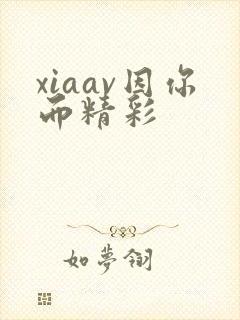 xiaav因你
而精彩
如夢翎